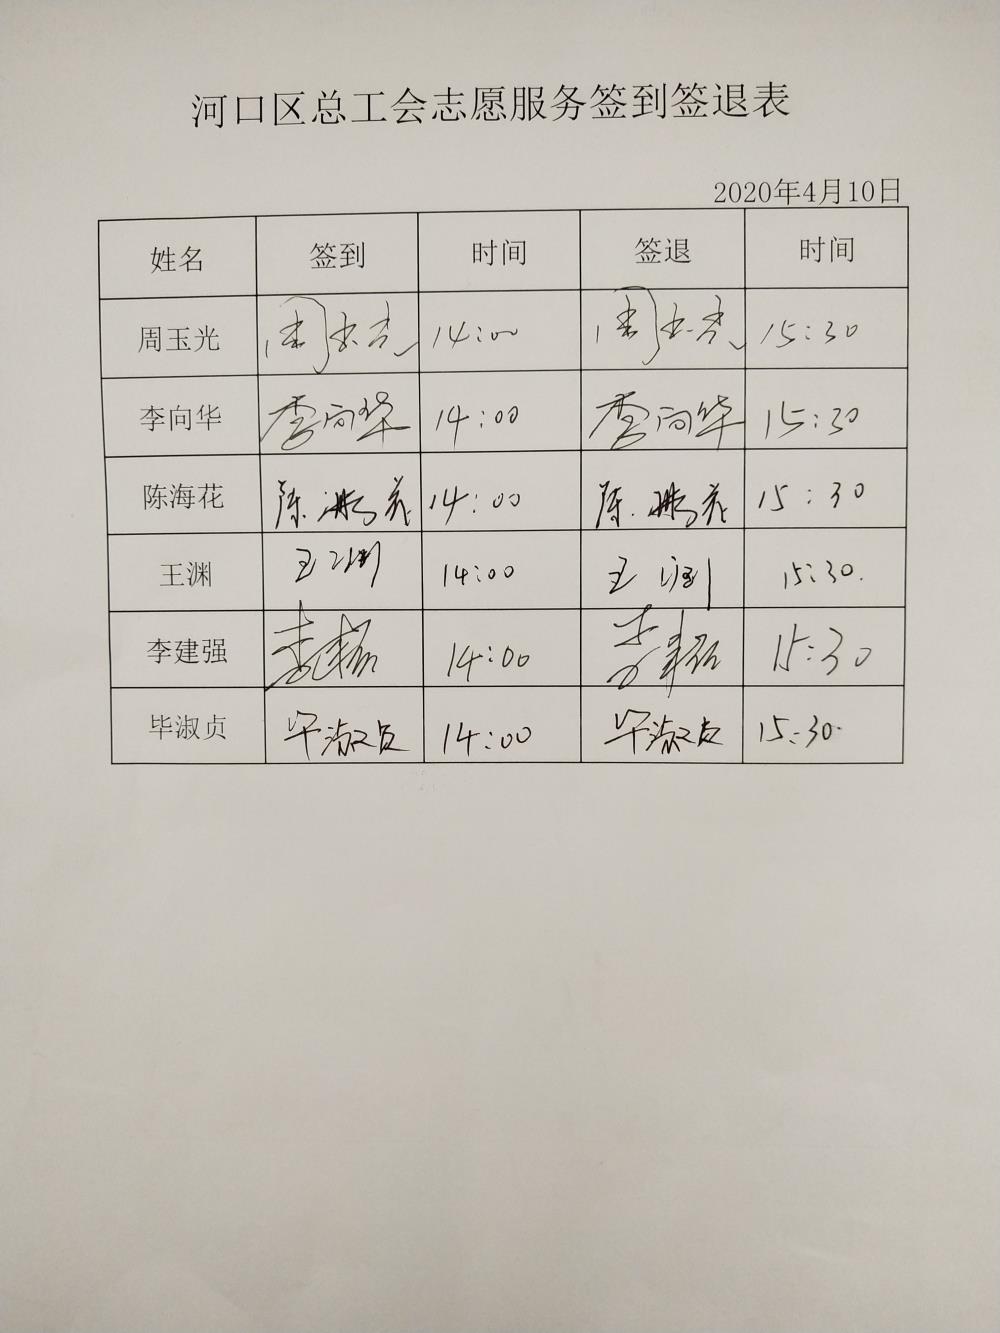 河口区总工会志愿服务签到签退表
2020年4月10日
姓名 签到 时间 签退 时间
周玉光 周玉光 14:00 周玉光 15:30
李向华 李向华 14:00 李向华 15:30
陈海花 陈海花 14:00 陈海花 15:30
王渊 王渊 14:00 王渊 15:30.
李建强 李建强 14:00 李建强 15:30
毕淑贞 毕淑贞 14:00 毕淑贞 15:30.